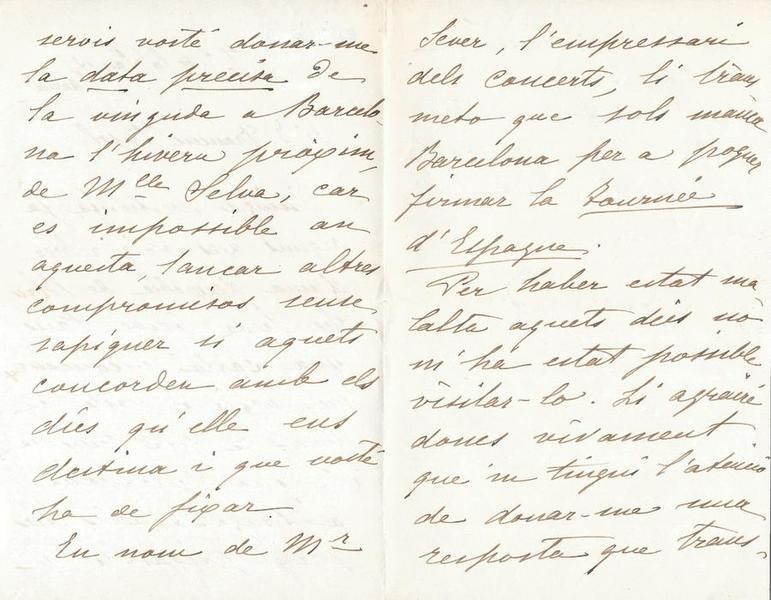 servis vosté donar-me
la data precisa de
la vinguda a Barcelo-
na l'hivern pròxim,
de Mlle Selva, car
es impossible an
aquesta, lançar altres
compromisos sense
sapiguer si aquets
concorden amb els
dies qu'elle ens
destina i que vosté
ha de fixar.
En nom de Mr
Sever, l'empressari
dels concerts, li trans
meto que sols manca
Barcelona per a poguer
firmar la Tournée
d'Espagne.
Per haber estat ma-
lalta aquets dies no
m'ha estat possible
visitar-lo. Li agrairé
doncs vivament
que'm tingui l'atenció
de donar-me una
resposta que trans-